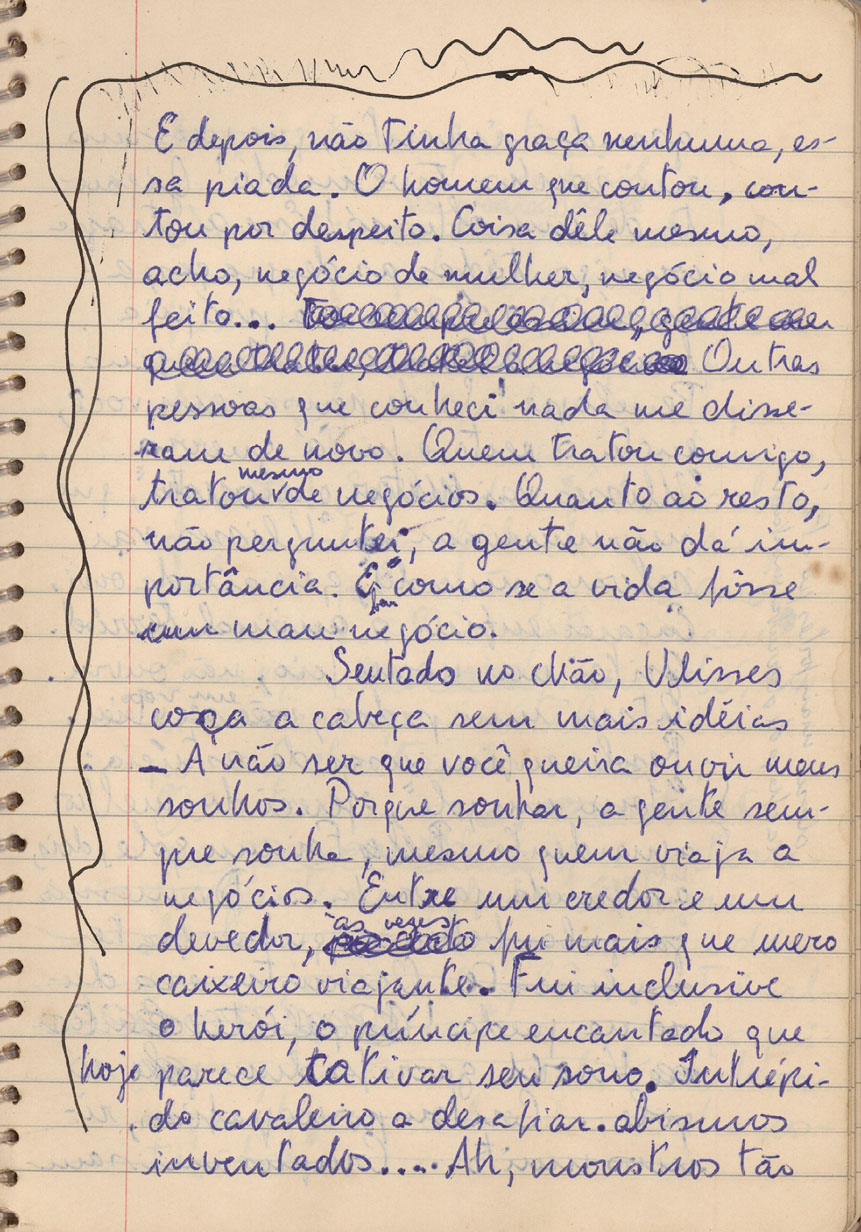 E depois, não tinha graça nenhuma, es-
sa piada. O homem que contou, con-
tou por despeito. Coisa dêle mesmo,
acho, negócio de mulher, negócio mal
feito...
Outras
pessoas que conheci nada me disse-
ram de novo. Quem tratou comigo,
mesmo
tratou de negócios. Quanto ao resto,
não perguntei, a gente não dá im-
portância. É como se a vida fôsse
um mau negócio.
Sentado no chão, Ulisses
coça a cabeça sem mais idéias
– A não ser que você queira ouvir meus
sonhos. Porque sonhar, a gente sem-
pre sonha, mesmo quem viaja a
negócios. Entre um credor e um
às vezes
devedor, fui mais que mero
caixeiro viajante. Fui inclusive
o herói, o príncipe encantado que
hoje parece cativar seu sono. Intrépi-
do cavaleiro a desafiar abismos
inventados.... Ah, monstros tão